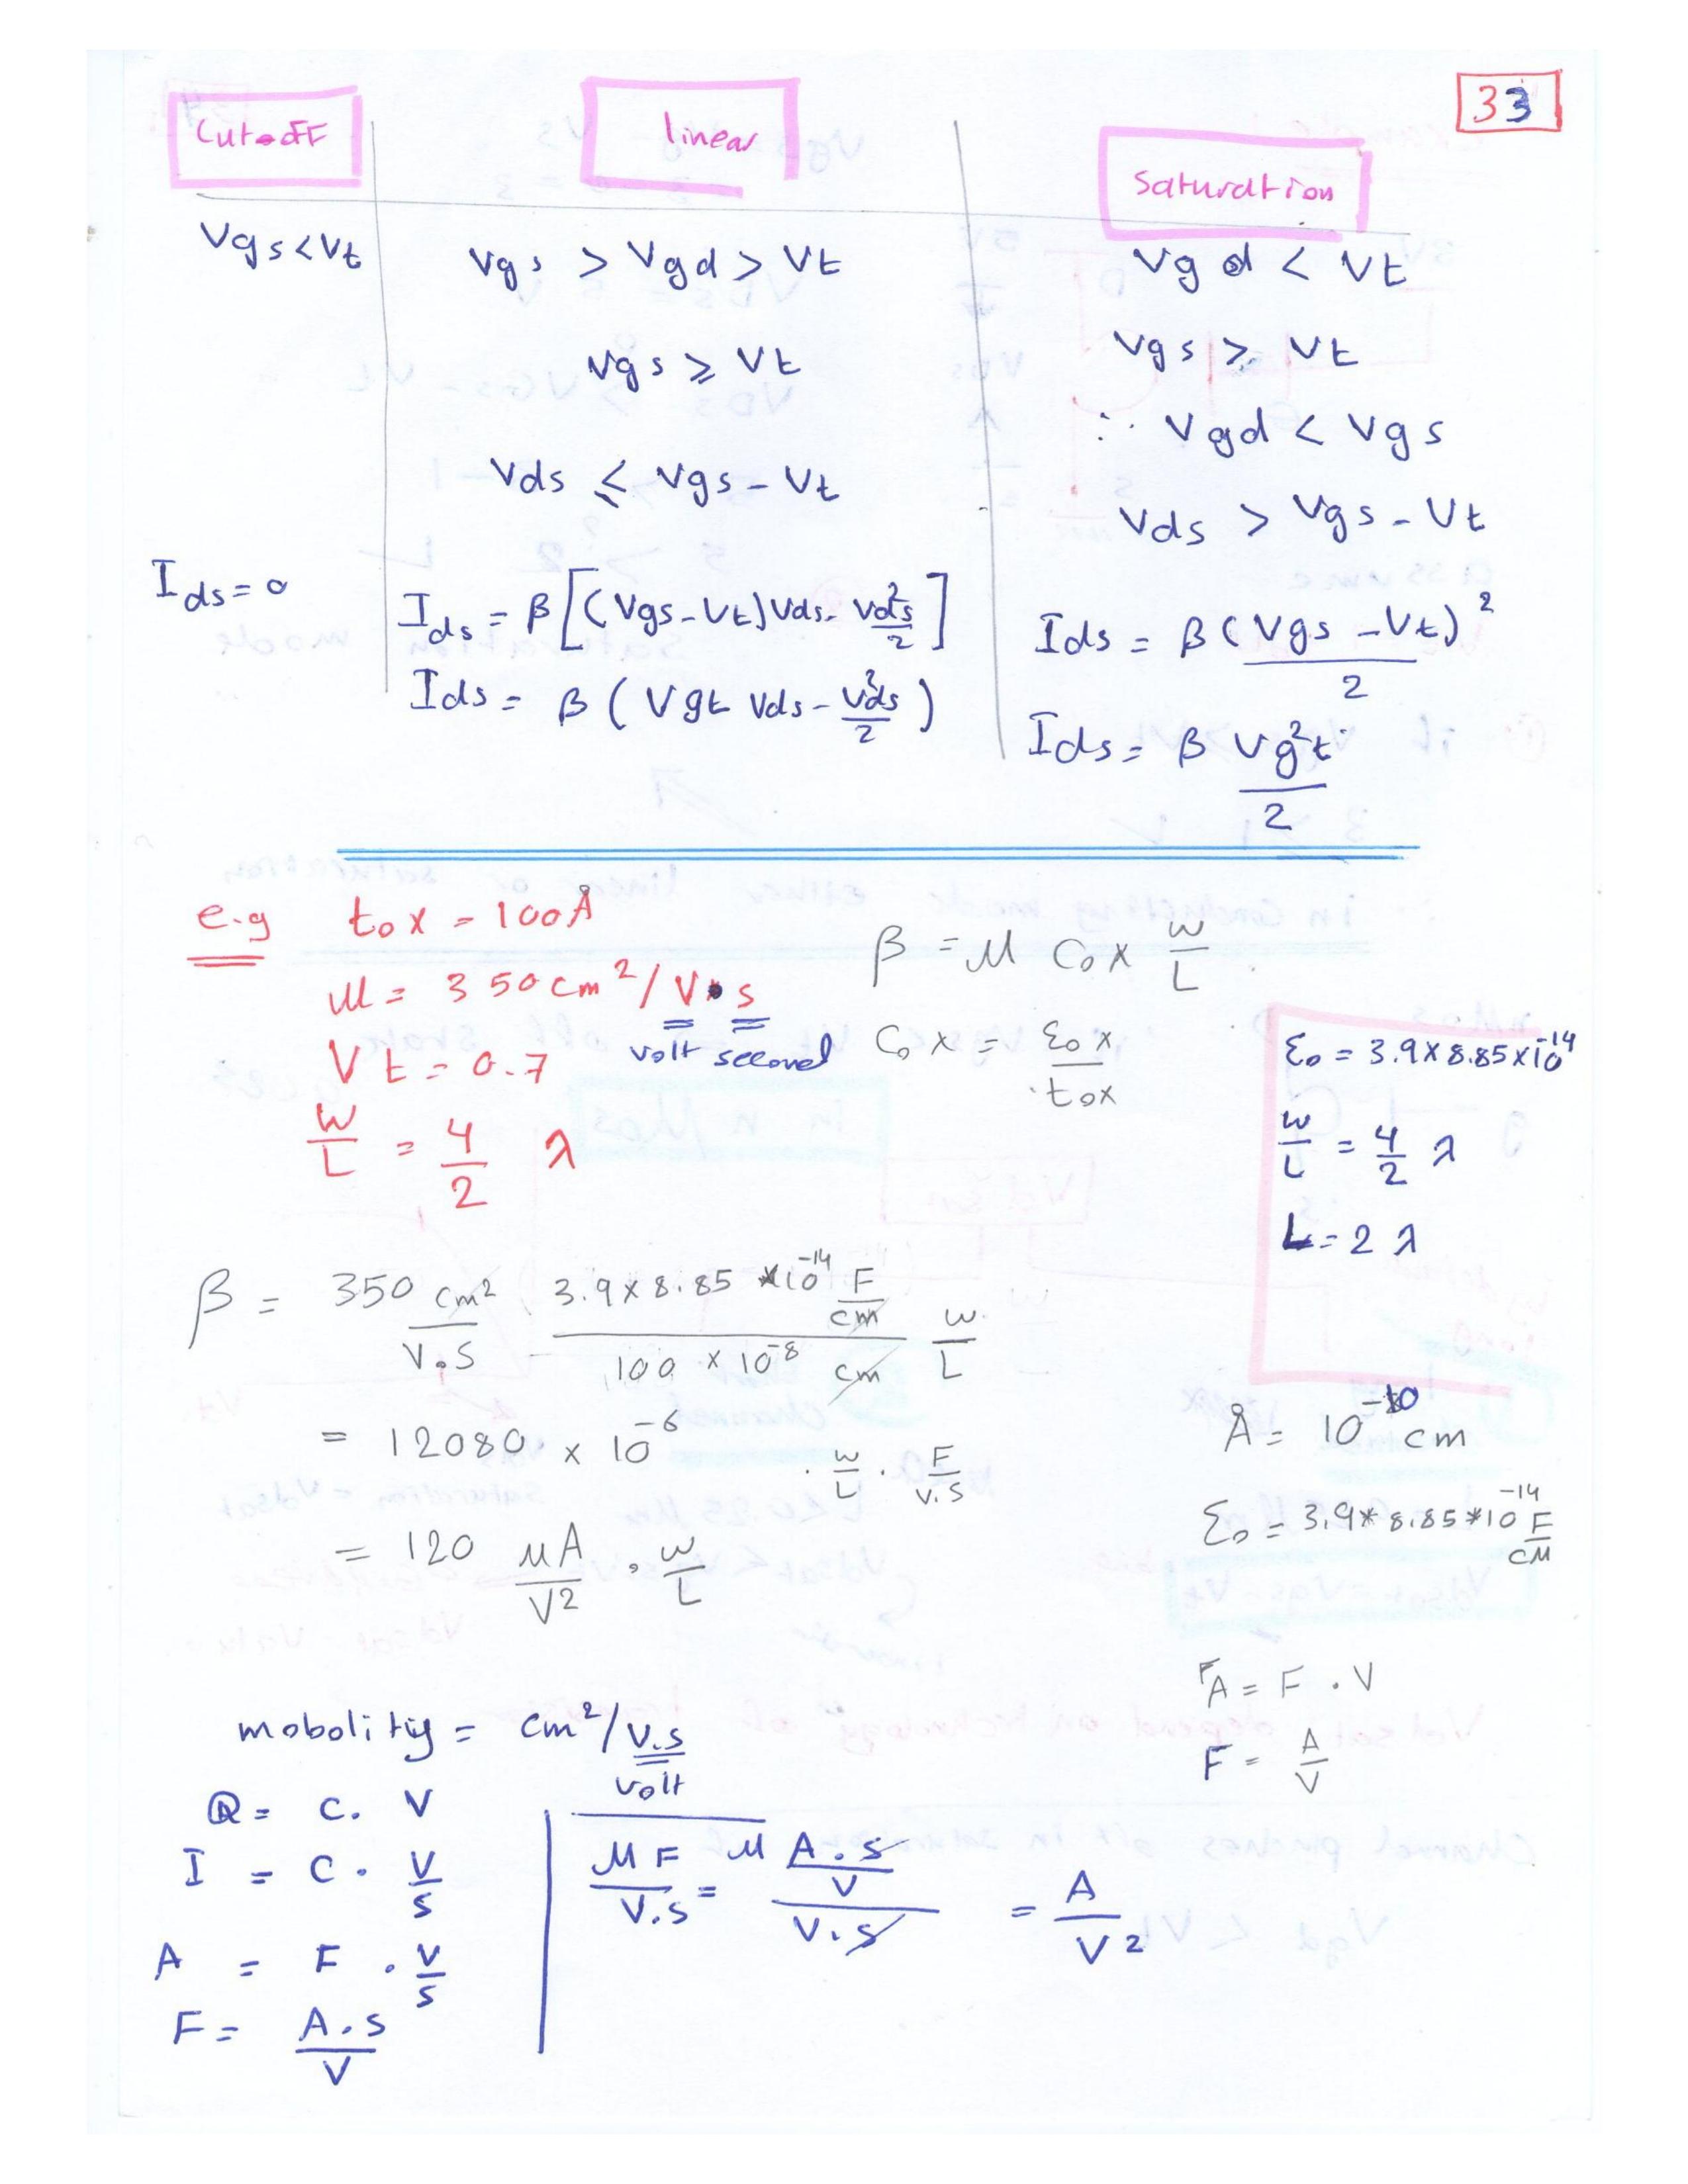 33
Cut-off
linear
Saturation
Vgs < Vt
Vgs > Vgd > Vt
Vgd < Vt
Vgs ⩾ Vt
Vgs ⩾ Vt
∴ Vgd < Vgs
Vds ⩽ Vgs - Vt
Vds > Vgs - Vt
Ids = 0
Ids = β [(Vgs - Vt) Vds - Vds²/2]
Ids = β (Vgs - Vt)²/2
Ids = β (Vgt Vds - Vds²/2)
Ids = β Vgt²/2
e.g tox = 100 Å
β = μ Cox W/L
μ = 350 cm²/V•s
volt second
Cox = εox/tox
Vt = 0.7
W/L = 4/2 λ
εo = 3.9 × 8.85 × 10⁻¹⁴
W/L = 4/2 λ
L = 2 λ
β = 350 cm²/V.S 3.9 × 8.85 × 10⁻¹⁴ F/cm / 100 × 10⁻⁸ cm W/L
= 12080 × 10⁻⁶ . W/L . F/V.S
Å = 10⁻¹⁰ cm
εo = 3.9 * 8.85 * 10⁻¹⁴ F/CM
= 120 μA/V² . W/L
A = F . V
F = A/V
mobolitiy = cm²/V.S
volt
Q = C. V
I = C . V/S
A = F . V/S
F = A.S/V
μF/V.S = μ A.S/V / V.S = A/V²